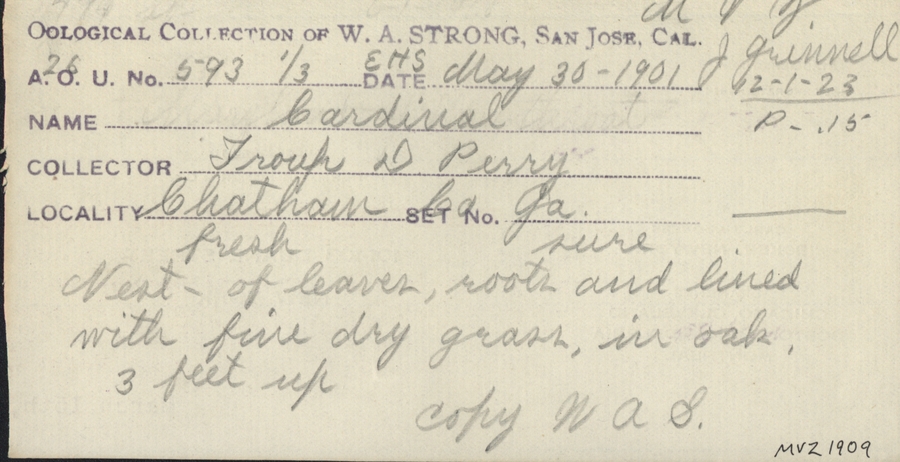 M V Z
OOLOGICAL COLLECTION OF W. A. STRONG, SAN JOSE, CAL.
J Grinnell
26 EHS
A. O. U. No. 593 1/3 DATE May 30-1901
12-1-23
NAME Cardinal
P - .15
COLLECTOR Troup D Perry
LOCALITY Chatham Co SET No. Ga.
fresh sure
Nest - of leaves, roots and lined
with fine dry grass, in oak,
3 feet up
copy W A S.
MVZ 1909